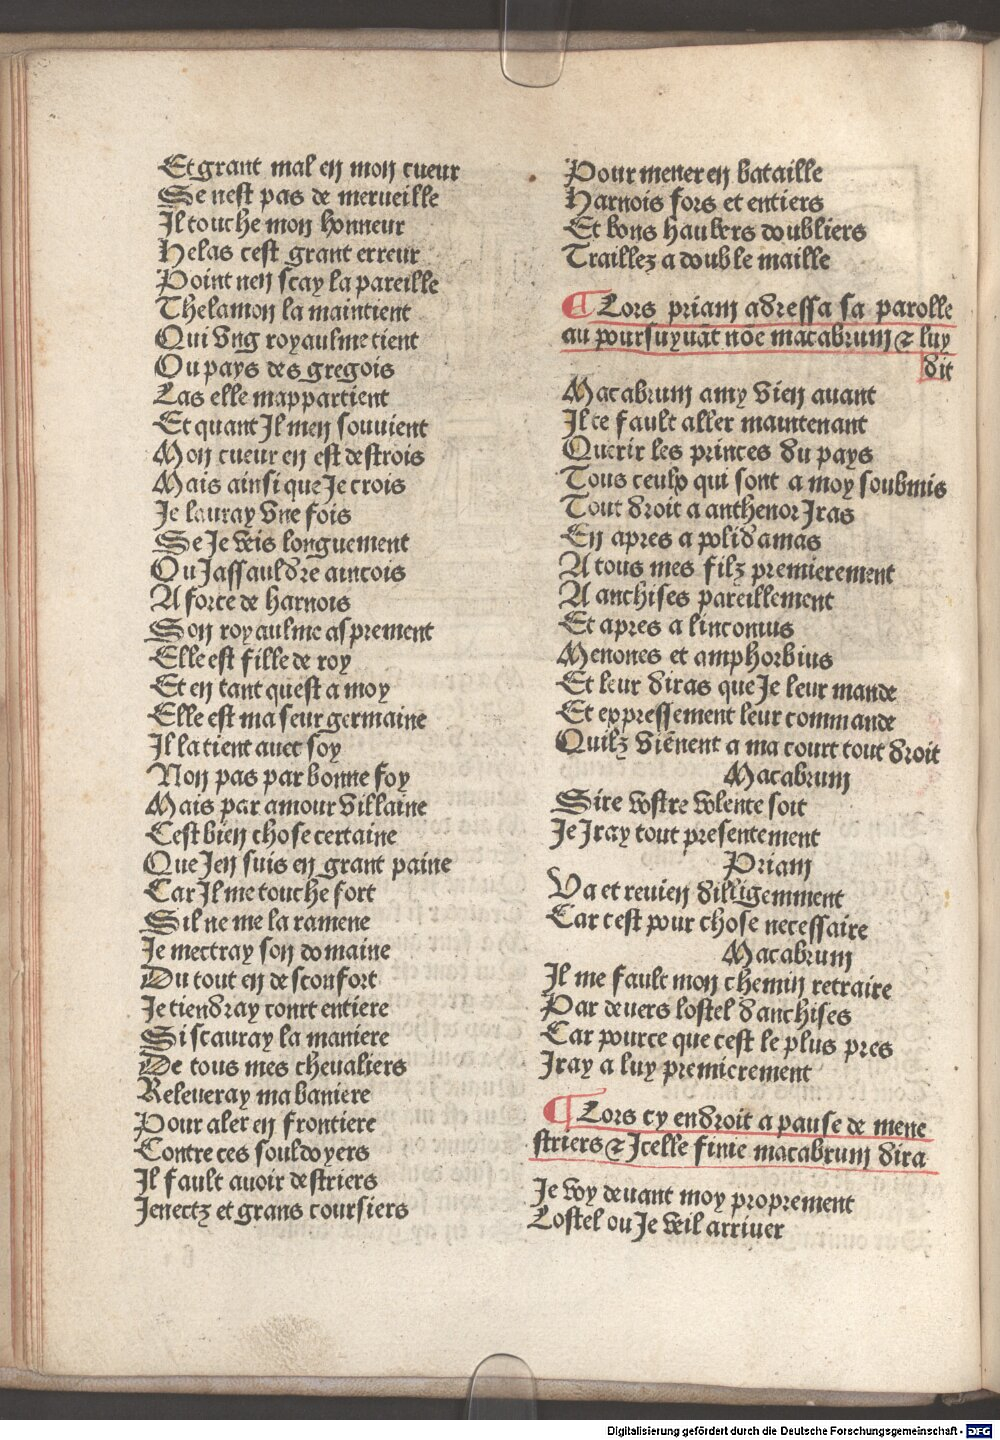 Et grant mal en mon cueur
Se nest pas de merueille
Il touche mon honneur
Helas cest grant erreur
Point nen scay la pareille
Thelamon la maintient
Qui vng royaulme tient
Ou pays des gregois
Las elle mappartient
Et quant Il men souuient
Mon cueur en est destrois
Mais ainsi que Je crois
Je lauray vne fois
Se Je veis longuement
Ou Jassauldre aincois
A force de harnois
Son royaulme asprement
Elle est fille de roy
Et en tant quest a moy
Elle est ma seur germaine
Il la tient auec soy
Non pas par bonne foy
Mais par amour villaine
Cest bien chose certaine
Que Jen suis en grant paine
Car Il me touche fort
Sil ne me la ramene
Je mectray son domaine
Du tout en desconfort
Je tiendray court entiere
Si scauray la maniere
De tous mes cheualiers
Releueray ma baniere
Pour aler en frontiere
Contre ces souldoyers
Il fault auoir destriers
Jenectz et grans coursiers
Pour mener en bataille
Harnois fors et entiers
Et bons haubers doubliers
Traillez a double maille
¶ Lors priam adressa sa parolle
au poursuyuāt nōe macabrum & luy
dit
Macabrum amy vien auant
Il te fault aller maintenant
Querir les princes du pays
Tous ceulx qui sont a moy soubmis
Tout droit a anthenor Jras
En apres a polidamas
A tous mes filz premierement
A anchises pareillement
Et apres a linconius
Menones et amphorbius
Et leur diras que Je leur mande
Et expressement leur commande
Quilz viēnent a ma court tout droit
Macabrum
Sire vostre volente soit
Je Jray tout presentement
Priam
Va et reuien dilligemment
Car cest pour chose necessaire
Macabrum
Il me fault mon chemin retraire
Par deuers lostel danchises
Car pource que cest le plus pres
Jray a luy premierement
¶ Lors cy endroit a pause de mene
striers & Jcelle finie macabrum dira
Je voy deuant moy proprement
Lostel ou Je veil arriuer
Digitalisierung gefördert durch die Deutsche Forschungsgemeinschaft - DFG